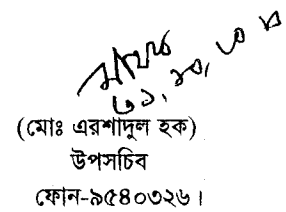 ৩১.১০.০৮
(মোঃ এরশাদুল হক)
উপসচিব
ফোন-৯৫৪০৩২৬।